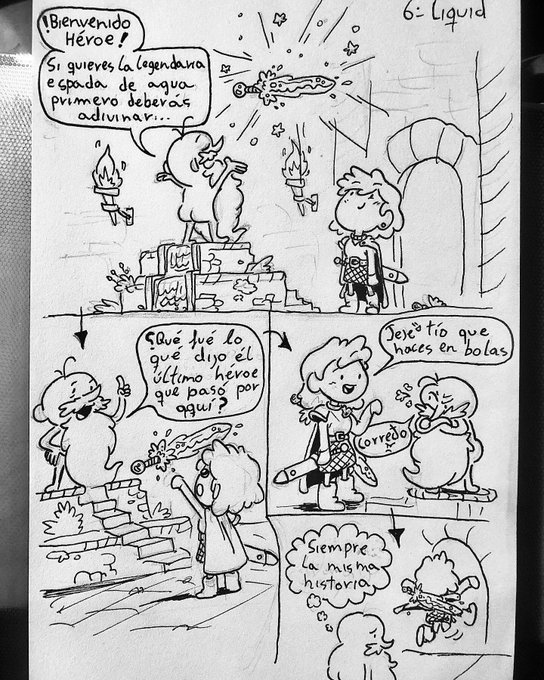 ¡Bienvenido
Héroe!
Si quieres la legendaria
espada de agua
primero deberás
adivinar...
6: Liquid
¿Qué fué lo
qué dijo él
último héroe
que pasó por
aquí?
Jeje tío que
haces en bolas
Correcto
Siempre
la misma
historia